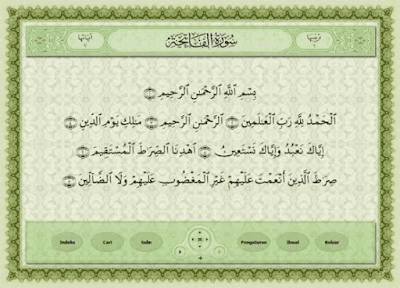 سُورَةُ الفَاتِحَةِ
بِسْمِ ٱللَّهِ ٱلرَّحْمَٰنِ ٱلرَّحِيمِ
ٱلْحَمْدُ لِلَّهِ رَبِّ ٱلْعَٰلَمِينَ ٱلرَّحْمَٰنِ ٱلرَّحِيمِ مَٰلِكِ يَوْمِ ٱلدِّينِ
إِيَّاكَ نَعْبُدُ وَإِيَّاكَ نَسْتَعِينُ ٱهْدِنَا ٱلصِّرَٰطَ ٱلْمُسْتَقِيمَ
صِرَٰطَ ٱلَّذِينَ أَنْعَمْتَ عَلَيْهِمْ غَيْرِ ٱلْمَغْضُوبِ عَلَيْهِمْ وَلَا ٱلضَّآلِّينَ
Indeks Cari Salin Pengaturan Keluar